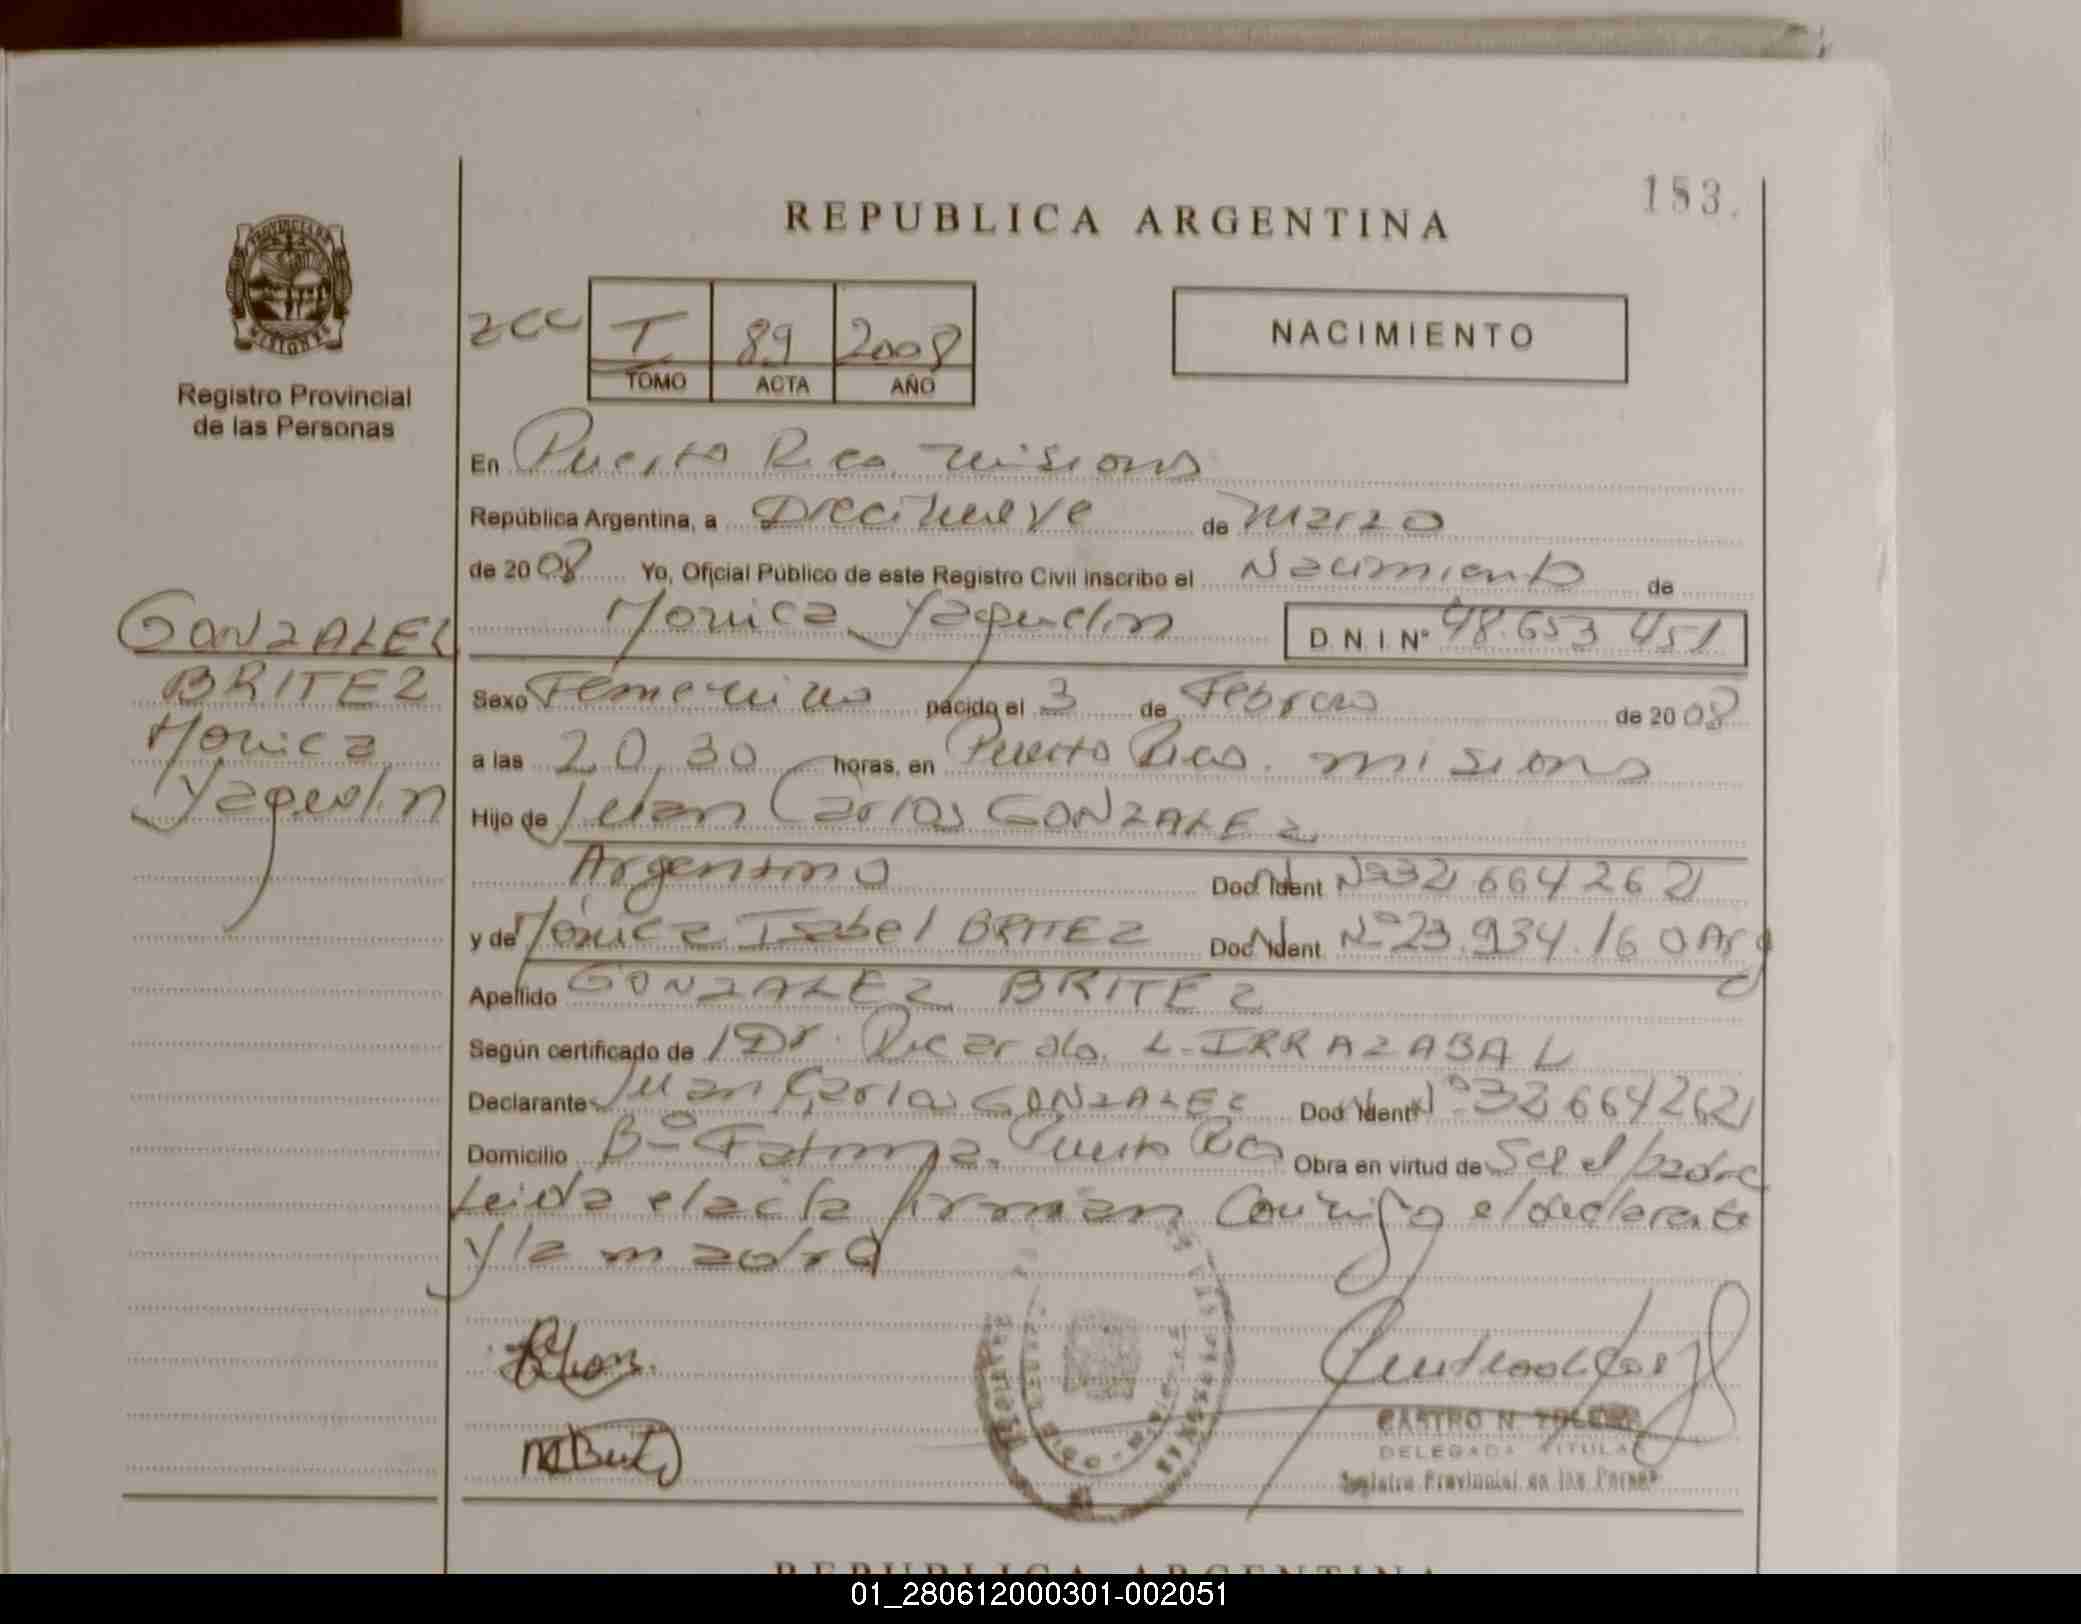 153.
REPUBLICA ARGENTINA
PROVINCIA DE
MISIONES
Registro Provincial
de las Personas
T 89 2008
TOMO ACTA AÑO
NACIMIENTO
En Puerto Rico. Misiones
República Argentina, a Diecinueve de Marzo
de 2008 Yo, Oficial Público de este Registro Civil inscribo el Nacimiento de
Monica Yaquelin D. N. I. Nº 48.653 451
GONZALEZ
BRITEZ
Monica
Yaquelin
Sexo Femenino nacido el 3 de Febrero de 2008
a las 20,30 horas, en Puerto Rico. misiones
Hijo de Juan Carlos GONZALEZ
Argentino Doc. Ident Nº 32 664 262
y de Mónica Isabel BRITEZ Doc. Ident. Nº 23.934.160 Arg
Apellido GONZALEZ BRITEZ
Según certificado de Dr. Ricardo. L. IRRAZABAL
Declarante Juan Carlos GONZALEZ Doc. Ident Nº 32 664262
Domicilio Bº Fatima. Puerto Rico Obra en virtud de Ser el padre
Leida el acta firman conmigo el declarante
y la madre
CASTRO N.
DELEGADA TITULAR
Registro Provincial de las Person
REPUBLICA ARGENTINA
01_280612000301-002051